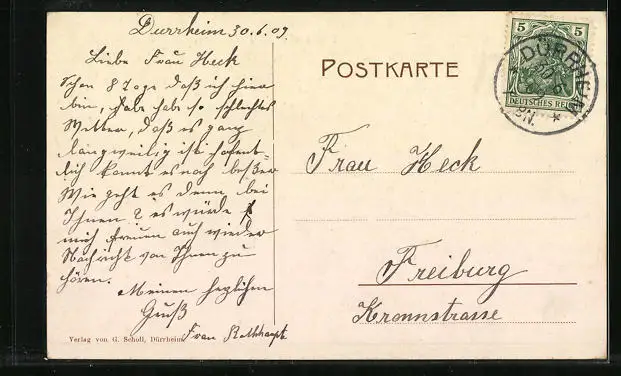 Durrheim 30.6.09.
Liebe Frau Heck
Schon 8 Tage daß ich hier
bin, habe habe so schlechtes
Wetter, daß es ganz
langweilig ist hofent-
lich kommt es noch beßer
Wie geht es denn bei
Ihnen ? es würde
mich freuen auch wieder
Nachricht von Ihnen zu
hören.
Meinen herzlichen
Gruß
Frau Rothhaupt
Verlag von G. Scholl, Dürrheim
POSTKARTE
5 5
DEUTSCHES REICH
DÜRRHEIM
Frau Heck
Freiburg
Kronnstrasse